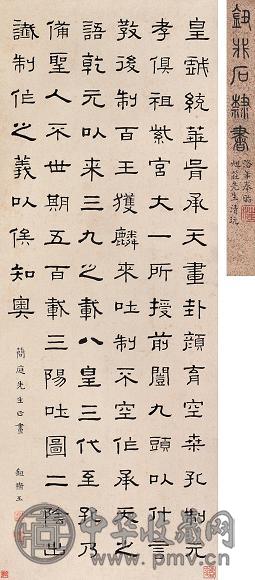 鈕非石隸書
旭莊先生清玩
皇戲統華胥承天畫卦顏育空桑孔制元
孝俱祖紫宮大一所授前闓九頭以什言
教後制百王獲麟來吐制不空作承天之
語乾元以來三九之載八皇三代至孔乃
備聖人不世期五百載三陽吐圖二陰出
讖制作之義以俟知奧
簡庭先生正畫 鈕樹玉
中华收藏网
www.pmv.cn